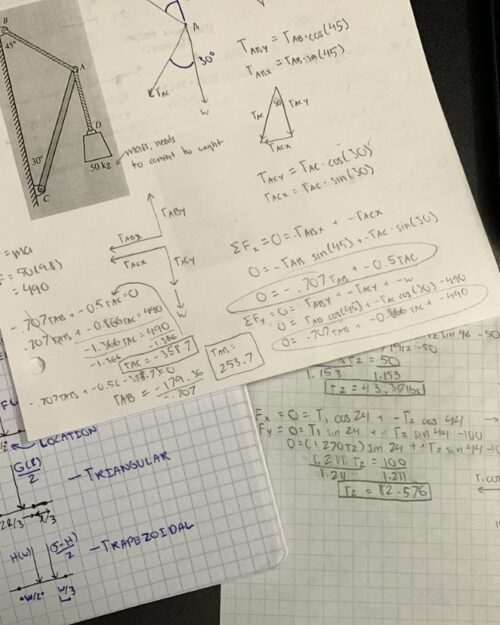 B
45°
A
D
30°
50 kg
C
A
30°
TAC
W
mass, needs
to convert to weight
TABY = TAB · cos(45)
TABX = TAB · sin(45)
TAC
30
TACY
TACX
TACY = TAC · cos(30)
TACX = TAC · sin(30)
TABX
TABY
TACX
TACY
W
= ma
F = 50(9.8)
= 490
ΣFx = 0 = -TABX + -TACX
0 = -TAB sin(45) + -TAC · sin(30)
0 = -.707TAB + -0.5TAC
ΣFy = 0 = TABY + -TACY + -W
0 = TAB cos(45) + -TAC cos(30) -490
0 = .707TAB + -0.866TAC + -490
-.707TAB + -0.5TAC = 0
.707TAB + -0.866TAC = 490
-1.366TAC = 490
-1.366 -1.366
TAC = -358.7
TAB = 253.7
-.707TAB + -0.5(-358.7) = 0
TAB = -179.36
-.707
LOCATION
G(l)
2
- TRIANGULAR
2l/3
l/3
H(W)
(J-H)
2
- TRAPEZOIDAL
W/2
W/3
sin 46 -50
= 50
1.153 1.153
T2 = 43.36 lbs
Fx = 0 = T1 cos 24 + -T2 cos 44
Fy = 0 = T1 sin 24 + -T2 sin 44 -100
0 = (1.270T2) sin 24 + T2 sin 44 -10
1.211 T2 = 100
1.211 1.211
T2 = 82.576
T1 co